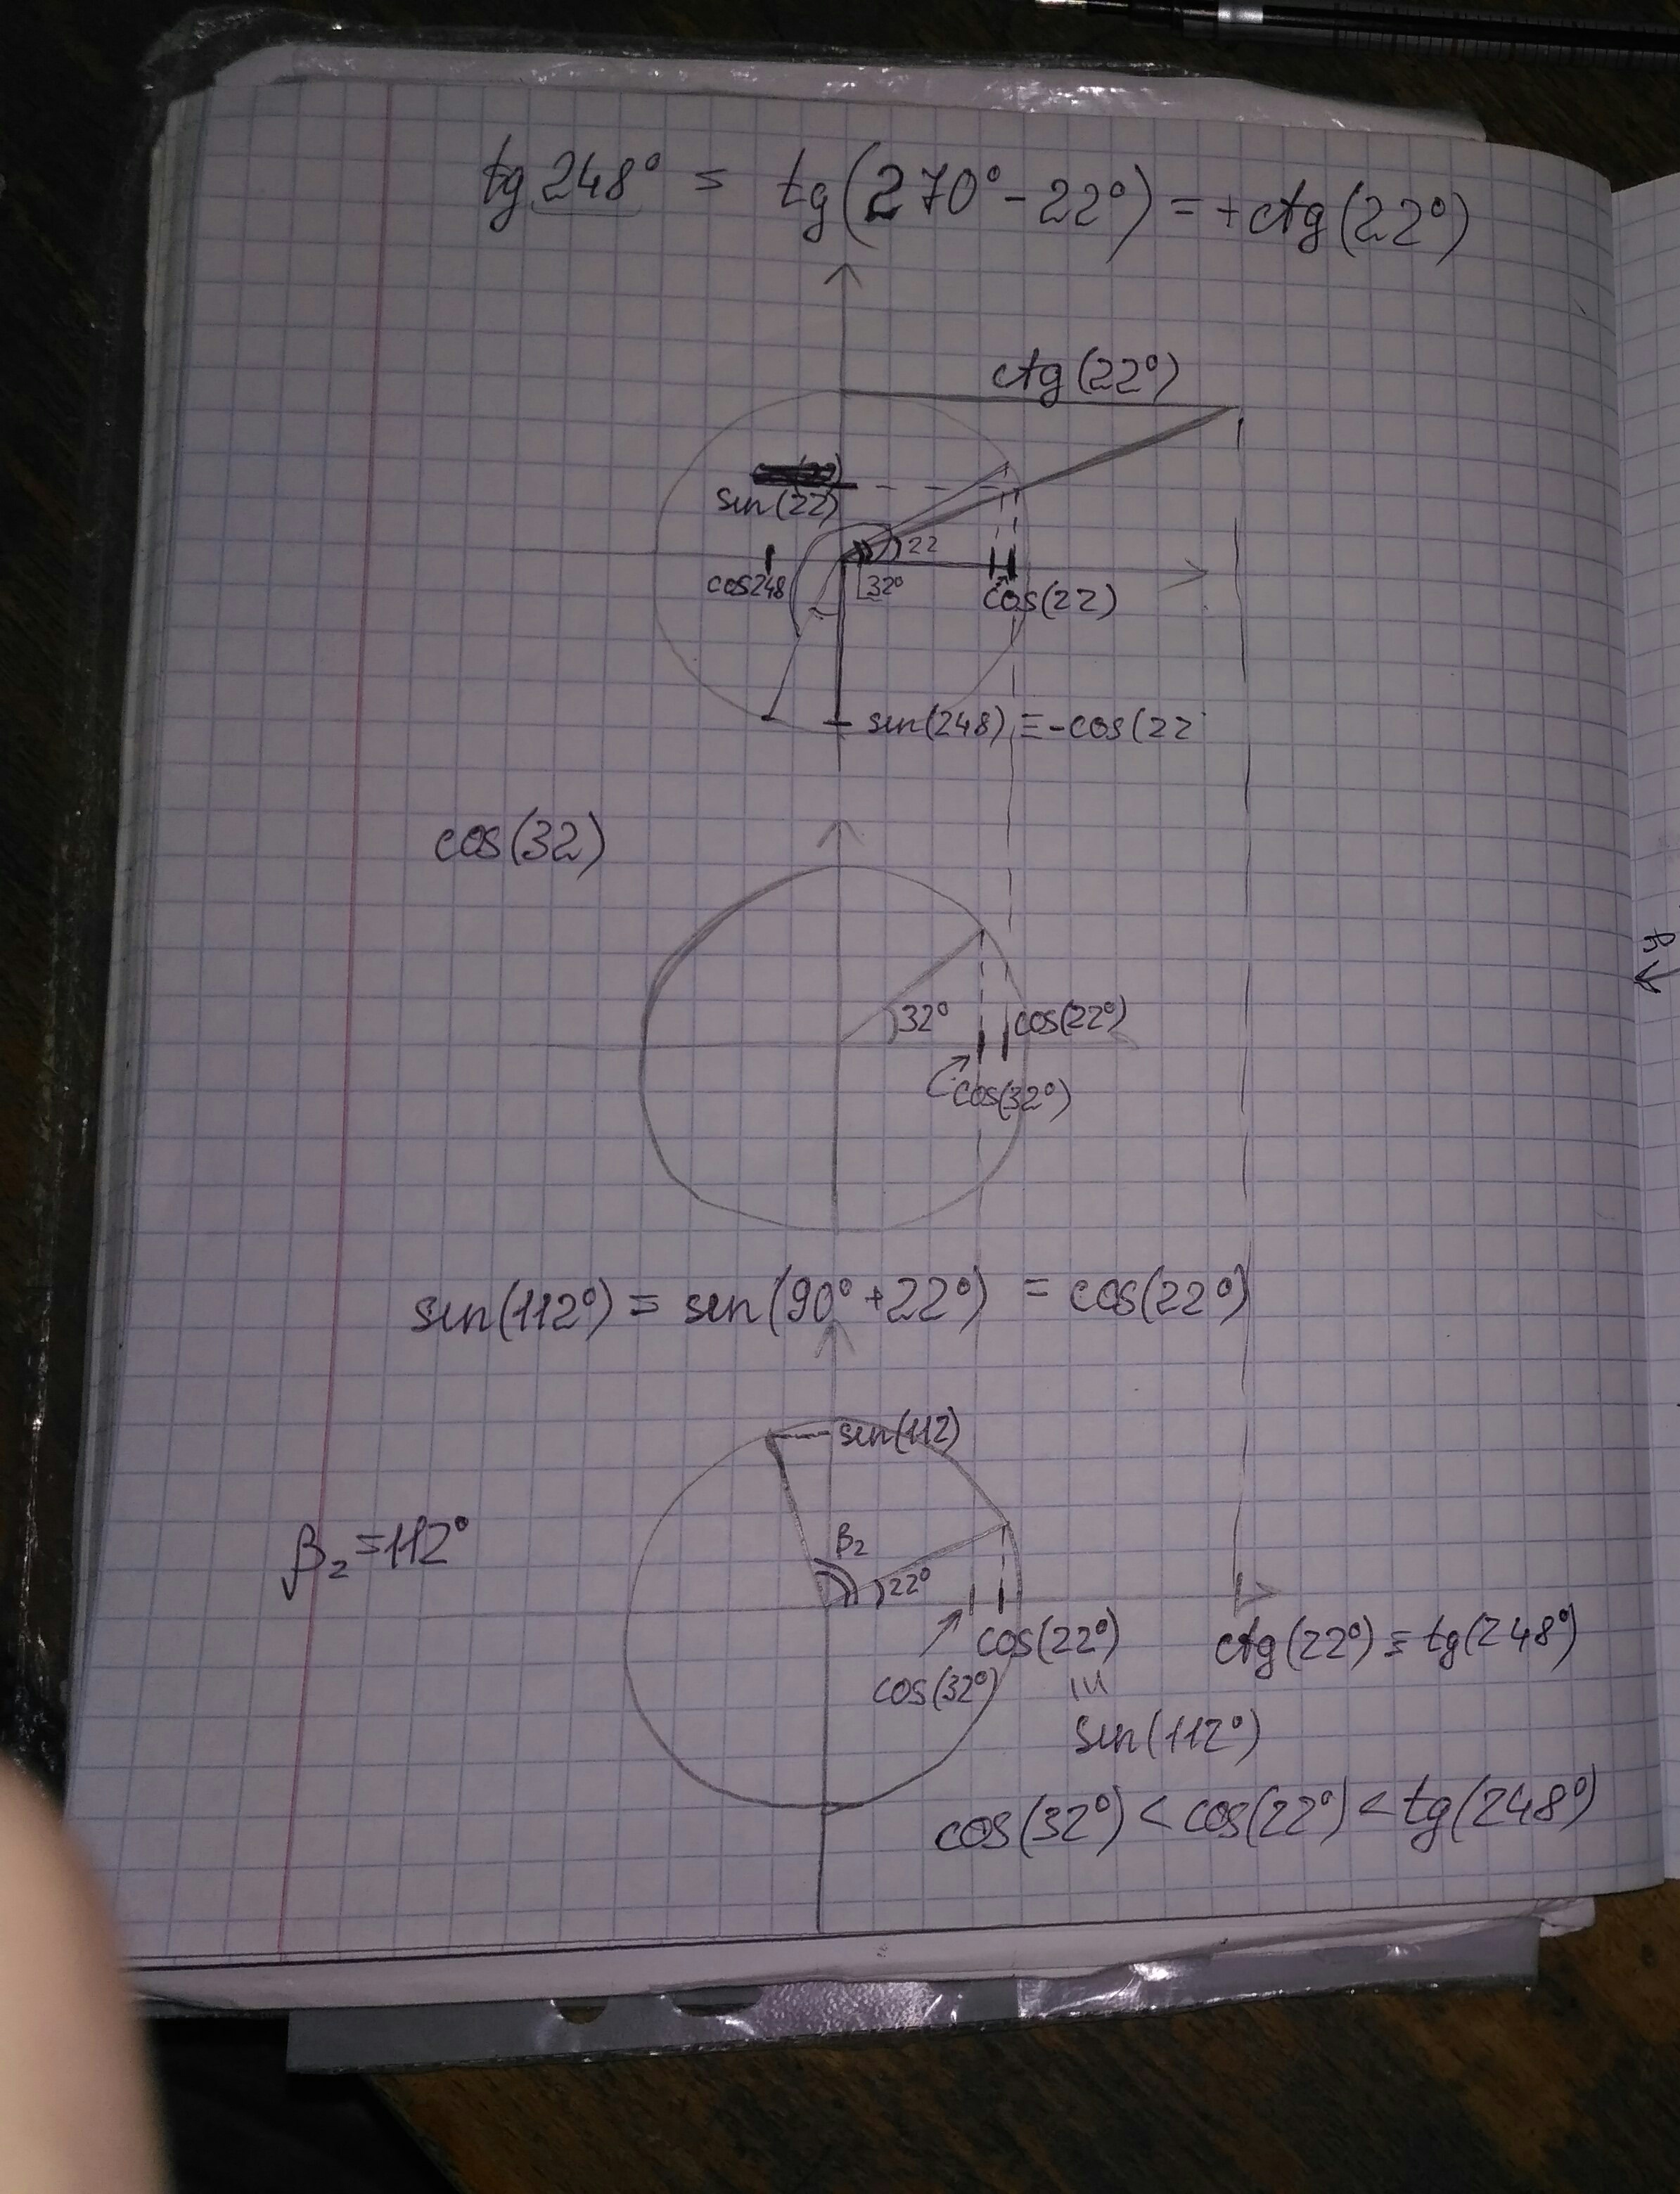 tg 248° = tg(270° - 22°) = +ctg(22°)
ctg(22°)
sin(22)
22
cos248
32°
cos(22)
sin(248) = -cos(22
cos(32)
32°
cos(22°)
cos(32°)
sin(112°) = sin(90° + 22°) = cos(22°)
sin(112)
β₂ = 112°
β₂
22°
cos(22°)
ctg(22°) = tg(248°)
cos(32°)
sin(112°)
cos(32°) < cos(22°) < tg(248°)
y